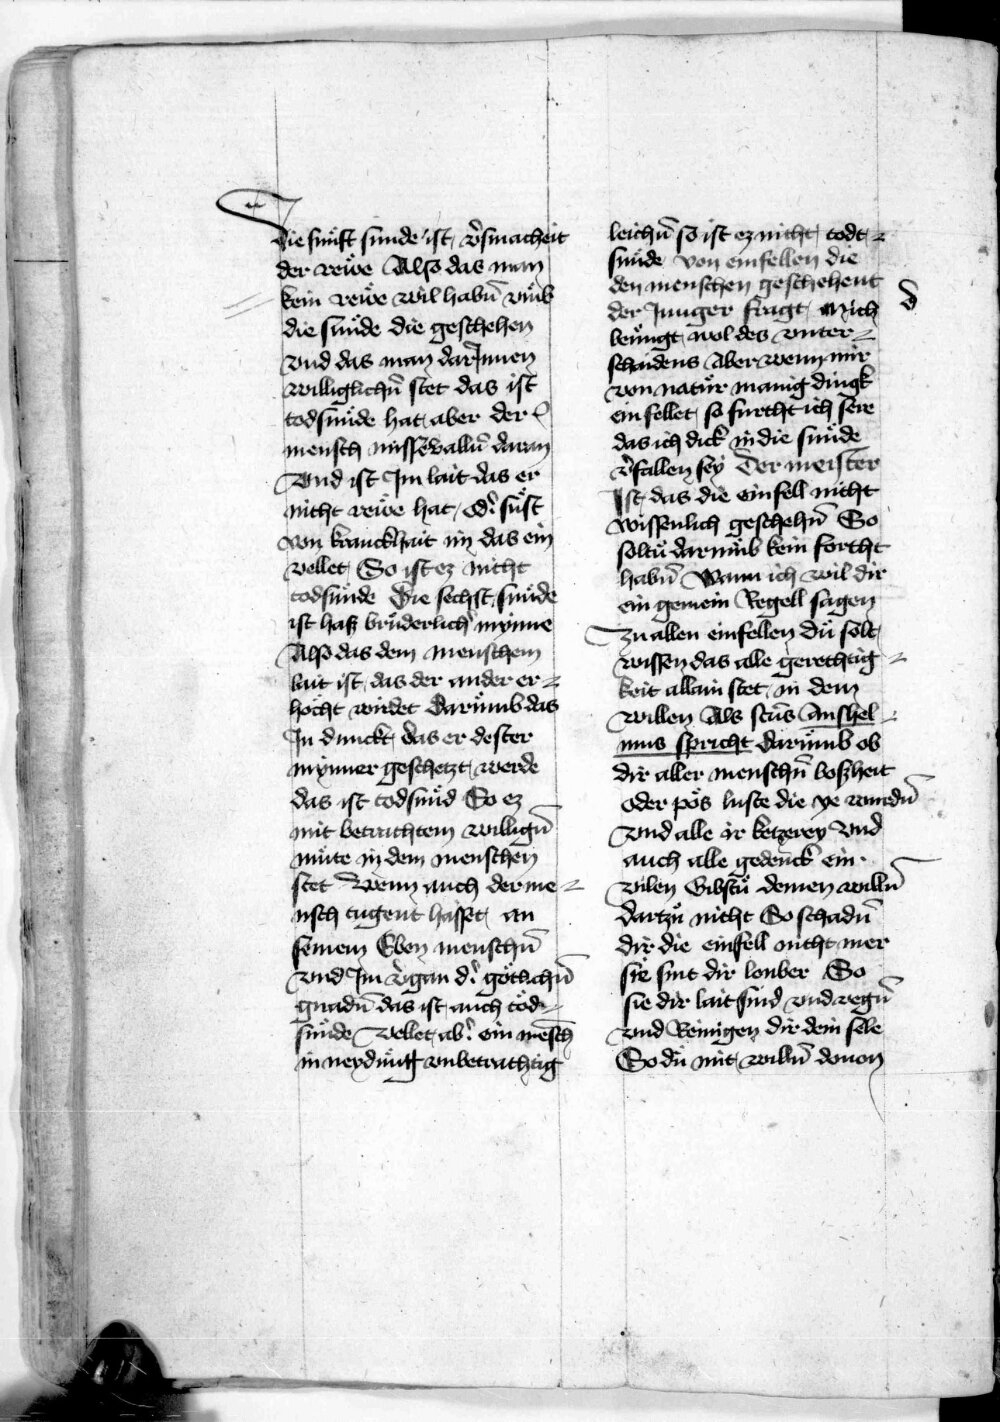 Die funft sunde ist v̉smacheit
der rewe Also das man
kein rewe wil habn̄ vmb
die sunde die geschehen
vnd das man dar Innen
williglichn̄ stet das ist
todsunde hat aber der
mensch missevalln̄ daran
Vnd ist Im lait das er
nicht rewe hat od̉ sust
von kranckhait in das ein
vellet So ist ez nicht
todsunde Die sechst sunde
ist haß bruderlich̉ mynne
Also das dem menschem
lait ist das der ander er⸗
hocht wirdet Darumb das
In dunckt das er dester
mynner geschetzt werde
das ist todsund So ez
mit betrachtem willign̄
mute in dem menschen
stet Wenn auch der me⸗
nsch tugent hasset an
seinem Eben menschn̄
vnd Im v̉gan d̉ gotlichn̄
gnadn̄ das ist auch tod⸗
sunde Vellet ab̉ ein mensch
in neydung vnbetrachtig
leichn̄ so ist ez nicht todt⸗
sunde von einfellen die
den menschen geschehent
der Junger fragt Mich d
benugt wol des vnter⸗
schaidens Aber wenn mir
von natur manig dingk
ein fellet so furcht ich sere
das ich dick in die sunde
v̉fallen sey Der meister
Ist das die einfell nicht
wissenlich geschehn̄ So
soltu darumb kein forcht
habn̄ Wann ich wil dir
ein gemein Regell sagen
Zu allen einfellen Du solt
wissen das alle gerechtig⸗
keit allain stet in dem
willen Als scūs Anshel⸗
mus spricht Darumb ob
dir aller menschn̄ boßheit
oder pos luste die ye wurdn̄
Vnd alle ir ketzerey Vnd
auch alle gedenck ein
vilen Gibstu deinen willn̄
dartzu nicht So schadn̄
dir die einfell nicht mer
sie sint dir lonber So
sie dir lait sind vnd regn̄
vnd Reinigen dir dein sele
So du mit willn̄ douon